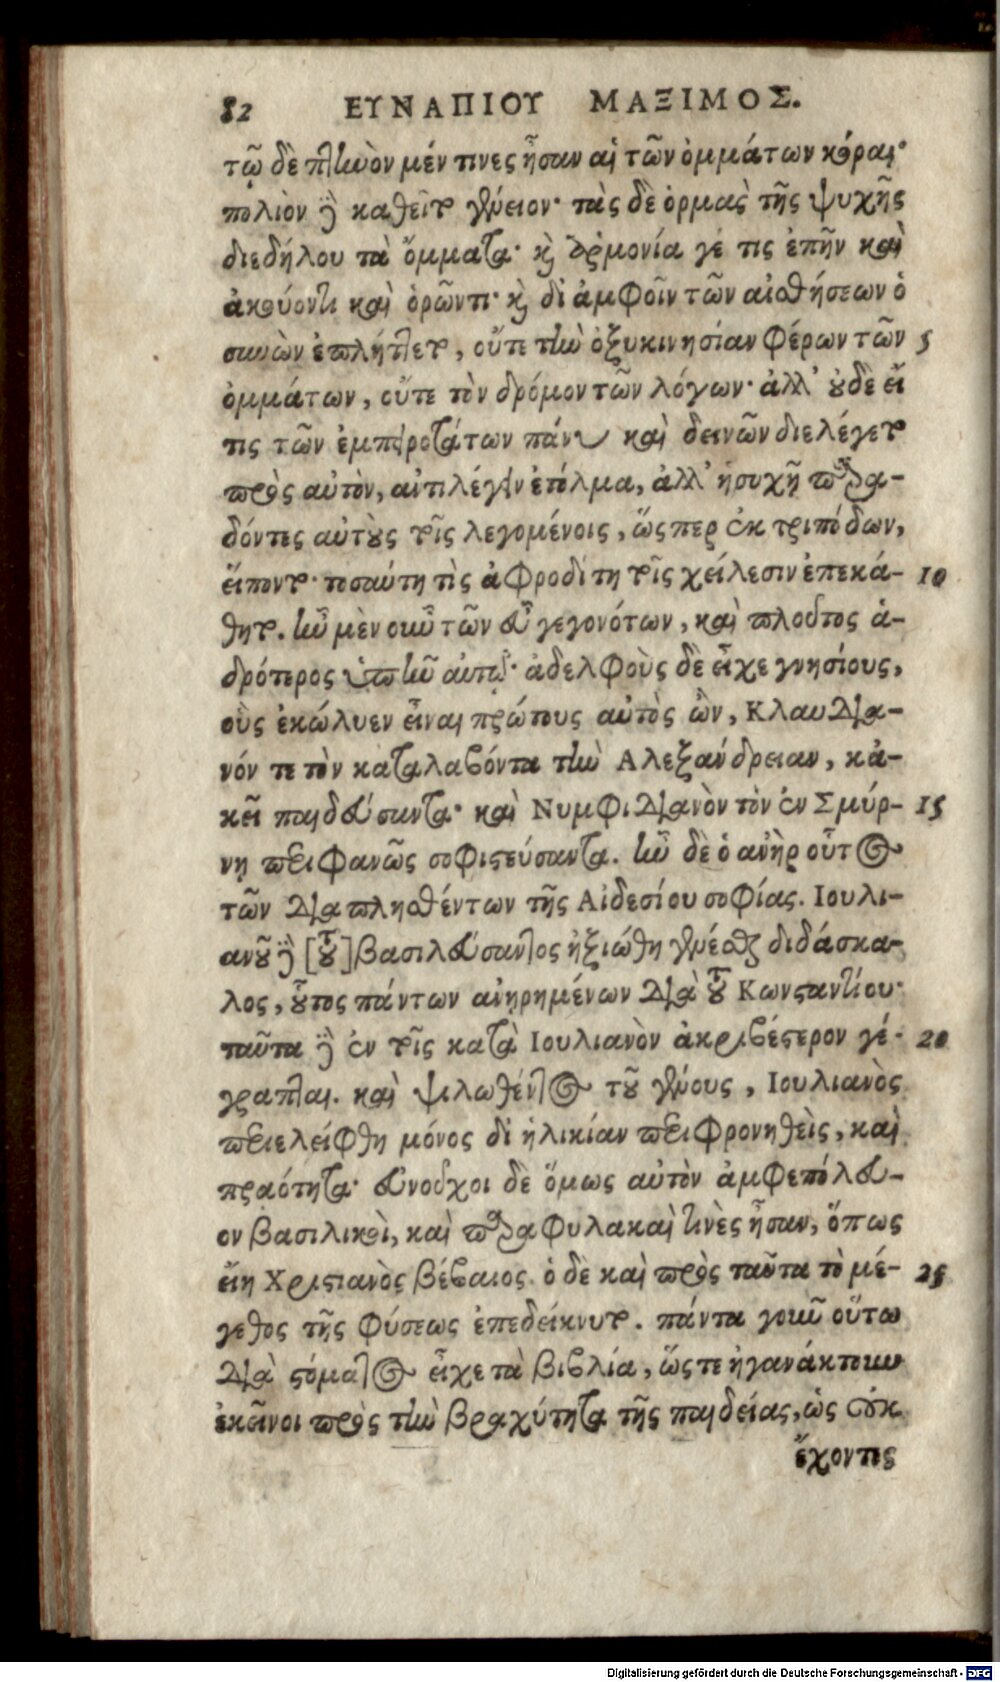 82 ΕΥΝΑΠΙΟΥ ΜΑΞΙΜΟΣ.
τῷ δὲ πτηνὸν μέν τινες ἦσαν αἱ τῶν ὀμμάτων κόραι·
πολιὸν δὲ καθεῖτο γένειον· τὰς δὲ ὁρμὰς τῆς ψυχῆς
διεδήλου τὰ ὄμματα· καὶ ἁρμονία γέ τις ἐπῆν καὶ
ἀκούοντι καὶ ὁρῶντι· καὶ δι' ἀμφοῖν τῶν αἰσθήσεων ὁ
συνὼν ἐπλήττετο, οὔτε τὴν ὀξυκινησίαν φέρων τῶν 5
ὀμμάτων, οὔτε τὸν δρόμον τῶν λόγων· ἀλλ' οὐδὲ εἴ
τις τῶν ἐμπειροτάτων πάνυ καὶ δεινῶν διελέγετο
πρὸς αὐτὸν, ἀντιλέγειν ἐτόλμα, ἀλλ' ἡσυχῇ παρα-
δόντες αὑτοὺς τοῖς λεγομένοις, ὥσπερ ἐκ τριπόδων,
εἵποντο· τοσαύτη τὶς ἀφροδίτη τοῖς χείλεσιν ἐπεκά- 10
θητο. ἦν μὲν οὖν τῶν εὖ γεγονότων, καὶ πλοῦτος ἁ-
δρότερος ὑπῆν αὐτῷ· ἀδελφοὺς δὲ εἶχε γνησίους,
οὓς ἐκώλυεν εἶναι πρώτους αὐτὸς ὢν, Κλαυδια-
νόν τε τὸν καταλαβόντα τὴν Αλεξάνδρειαν, κἀ-
κεῖ παιδεύσαντα· καὶ Νυμφιδιανὸν τὸν ἐν Σμύρ- 15
νῃ περιφανῶς σοφιστεύσαντα. ἦν δὲ ὁ ἀνὴρ οὗτος
τῶν διαπλησθέντων τῆς Αἰδεσίου σοφίας. Ιουλι-
ανοῦ δὲ [τοῦ] βασιλεύσαντος ἠξιώθη γενέσθαι διδάσκα-
λος, οὗτος πάντων ἀνῃρημένων διὰ τοῦ Κωνσταντίου·
ταῦτα δὲ ἐν τοῖς κατὰ Ιουλιανὸν ἀκριβέστερον γέ- 20
γραπται. καὶ ψιλωθέντος τοῦ γένους, Ιουλιανὸς
περιελείφθη μόνος δι' ἡλικίαν περιφρονηθεὶς, καὶ
πραότητα· εὐνοῦχοι δὲ ὅμως αὐτὸν ἀμφεπόλευ-
ον βασιλικοὶ, καὶ παραφυλακαὶ τινὲς ἦσαν, ὅπως
εἴη Χριστιανὸς βέβαιος. ὁ δὲ καὶ πρὸς ταῦτα τὸ μέ- 25
γεθος τῆς φύσεως ἐπεδείκνυτο. πάντα γοῦν οὕτω
διὰ στόματος εἶχε τὰ βιβλία, ὥστε ἠγανάκτουν
ἐκεῖνοι πρὸς τὴν βραχύτητα τῆς παιδείας, ὡς οὐκ
ἔχοντες
Digitalisierung gefördert durch die Deutsche Forschungsgemeinschaft - DFG